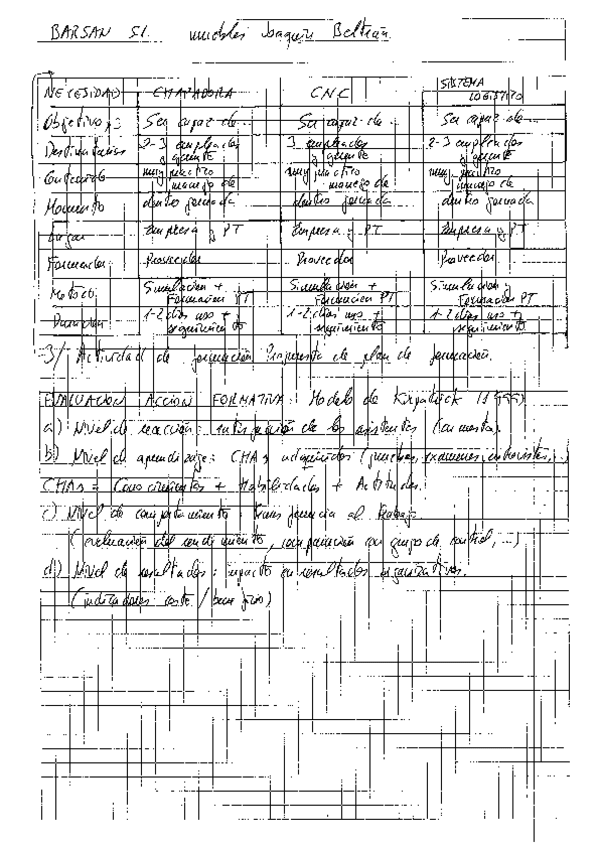 BARSAN Sl. muebles Joaquín Beltrán.
NECESIDAD CHAPADORA CNC SISTEMA LOGISTICO
Objetivos Ser capaz de... Ser capaz de... Ser capaz de...
Destinatarios 2-3 empleados y gerente 3 empleados y gerente 2-3 empleados y gerente
Contenido muy práctico manejo de muy práctico manejo de muy práctico manejo de
Momento dentro jornada dentro jornada dentro jornada
Lugar Empresa y PT Empresa y PT Empresa y PT
Formador Proveedor Proveedor Proveedor
Metodo Simulación + Formación PT Simulación + Formación PT Simulación y Formación PT
Duración 1-2 días uso + seguimiento 1-2 días uso + seguimiento 1-2 días uso + seguimiento
3/ Actividad de formación Propuesta de plan de formación.
EVALUACION ACCION FORMATIVA: Modelo de Kirpatrick
a) Nivel de reacción: satisfacción de los asistentes (encuesta).
b) Nivel de aprendizaje: CHAs adquiridos (pruebas, exámenes, entrevistas,...)
CHAs = Conocimientos + Habilidades + Actitudes.
c) Nivel de comportamiento: transferencia al trabajo.
(evaluación del rendimiento, comparación con grupo de control, ...)
d) Nivel de resultados: impacto en resultados organizativos.
(indicadores coste / beneficio)